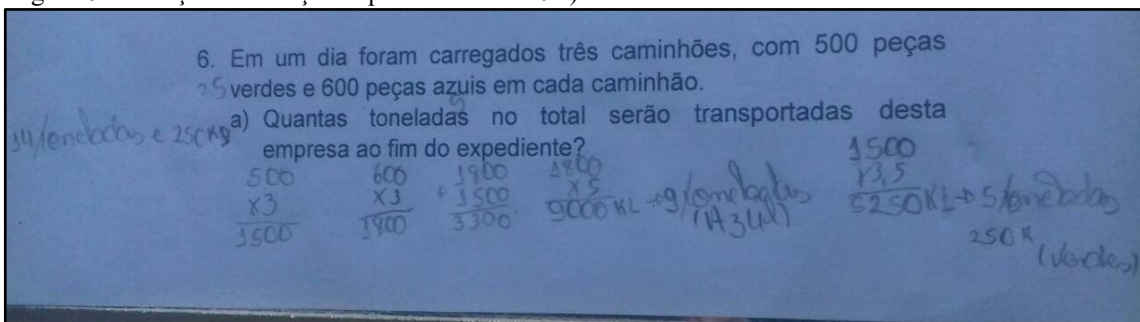 6. Em um dia foram carregados três caminhões, com 500 peças
verdes e 600 peças azuis em cada caminhão.
a) Quantas toneladas no total serão transportadas desta
empresa ao fim do expediente?
14 toneladas e 250Kg
500
x3
1500
600
x3
1800
1800
+ 1500
3300
1800
x5
9000 KL → 9 toneladas
(Azul)
1500
x3,5
5250KL → 5 toneladas
250 K
(verdes)